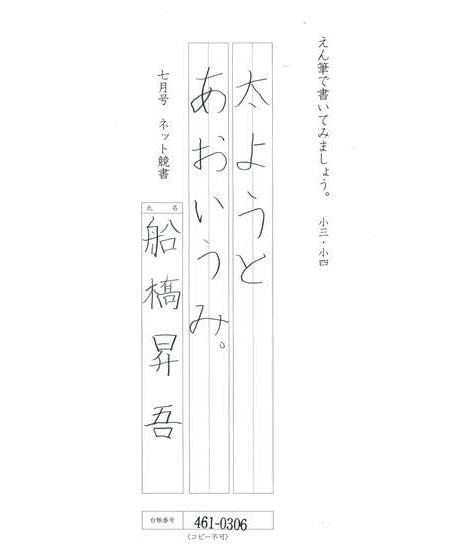 えん筆で書いてみましょう。 小三・小四
太ようと
あおいうみ。
七月号 ネット競書
氏名
船橋昇吾
台帳番号 461-0306
(コピー不可)